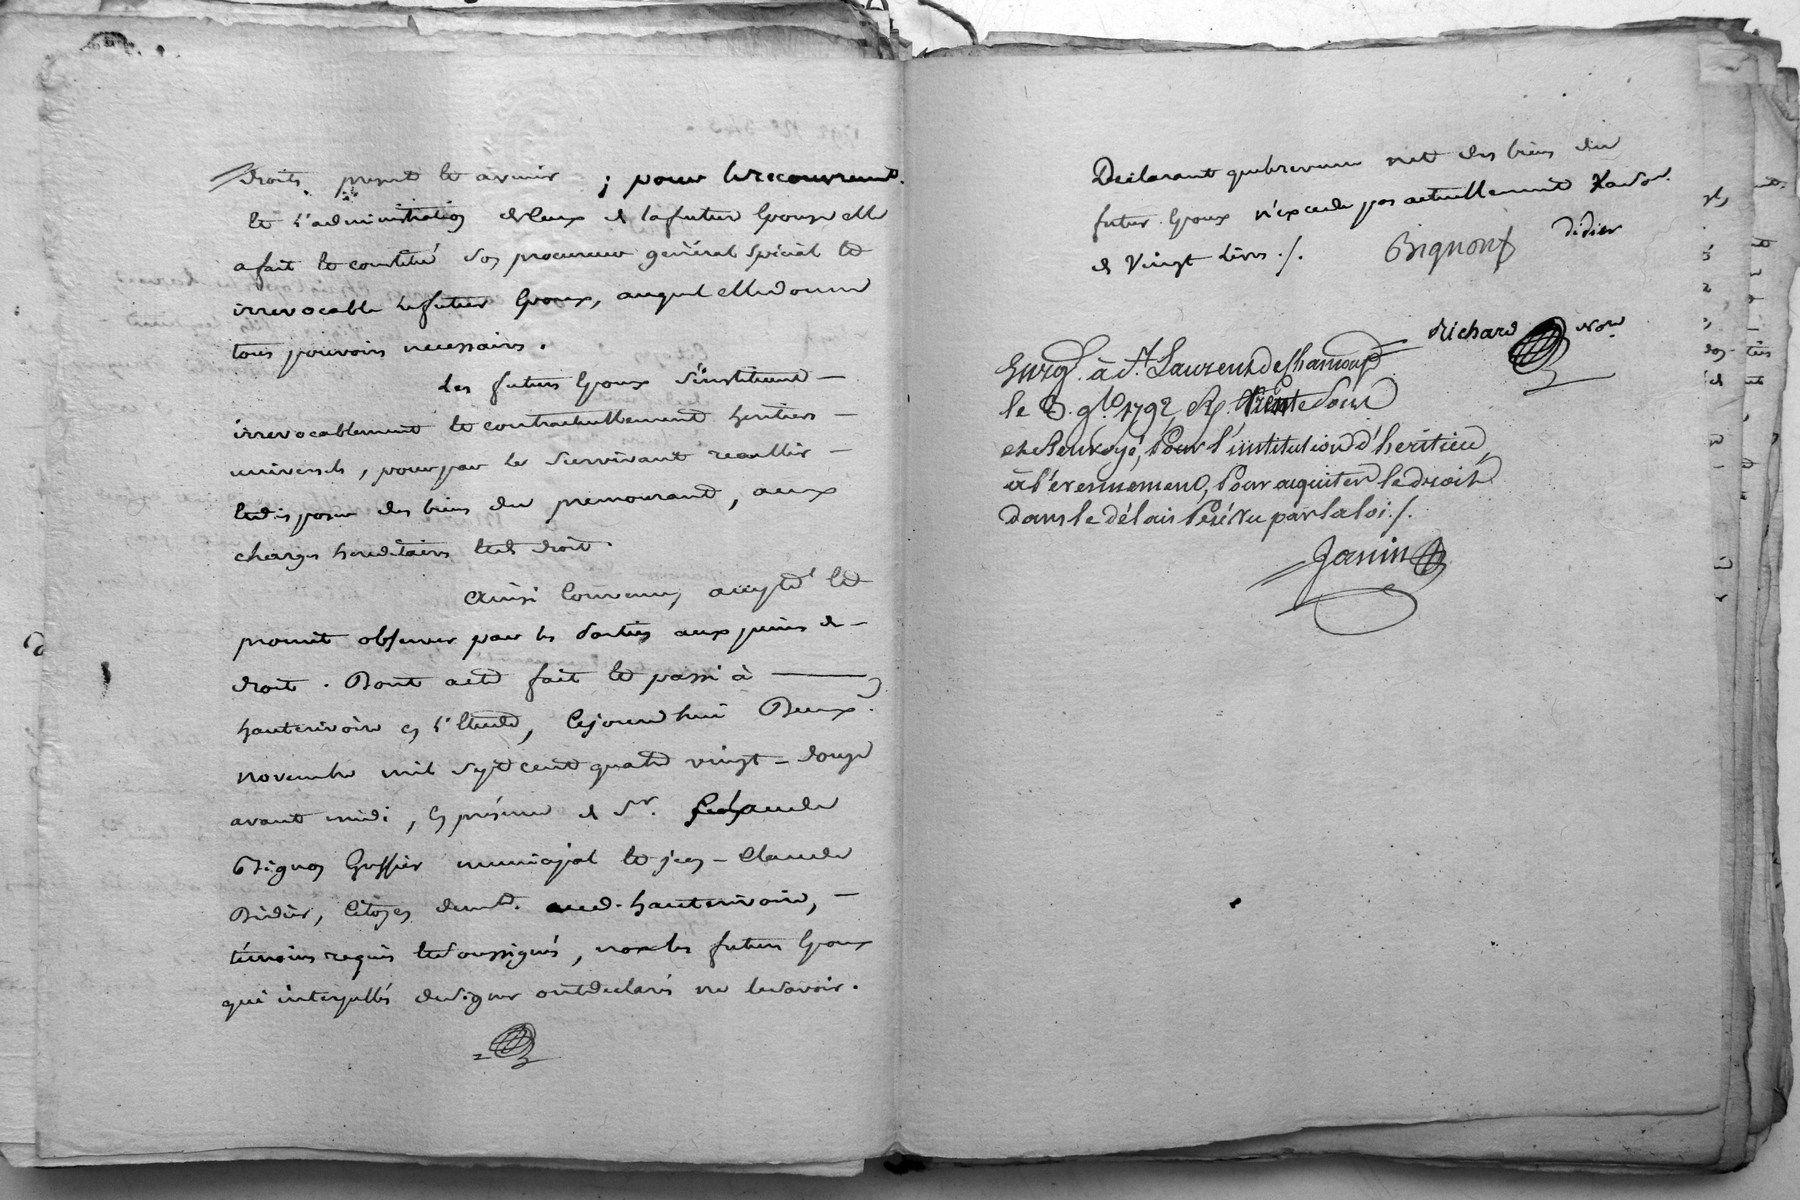 droits present et avenir ; pour le recouvrement
et l'administration de ceux de la future Epouse elle
a fait et constitué son procureur général spécial et
irrevocable le futur Epoux, auquel elle donne
tous pouvoirs necessaires.
Les futurs Epoux s'instituent -
irrevocablement et contractuellement heritiers -
universels, pour par le survivant recueillir -
et disposer des biens du premourant, aux
charges hereditaires et de droit.
Ainsi convenu, accepté et
promit observer par les parties aux peines de -
droit. Dont acte fait et passé à
hauterivoire en l'Etude, cejourd'hui Deux
novembre mil sept cent quatre vingt - douze
avant midi, en présence de Sr. Claude
Bignon Greffier municipal et jean - Claude
Didier, Citoyen demt. aud. hauterivoire, -
témoins requis et soussignés, non les futurs Epoux
qui interpellés de signer ont declarés ne le savoir.
Declarant que le revenu net des biens du
futur Epoux n'excede pas actuellement
de vingt livres ./.
Bignon
Didier
Richard Nore
Enregt. à St. Laurent de Chamousset
le 9bre 1792, R. trente sous
et Renvoyé, Pour l'institution d'heritier,
à l'evennement, Pour acquiter le droit
dans le délais Préscu par la loi ./.
Janin